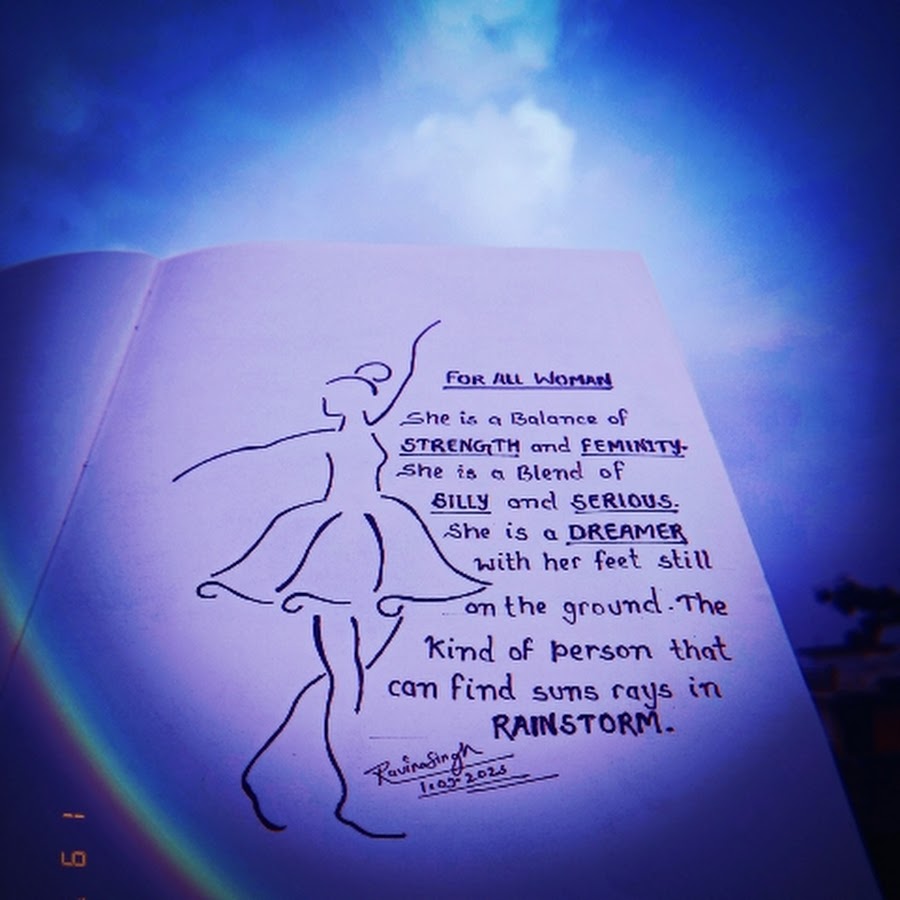 FOR ALL WOMAN
She is a Balance of
STRENGTH and FEMINITY.
She is a Blend of
SILLY and SERIOUS.
She is a DREAMER
with her feet still
on the ground. The
Kind of person that
can find suns rays in
RAINSTORM.
RavinaSingh